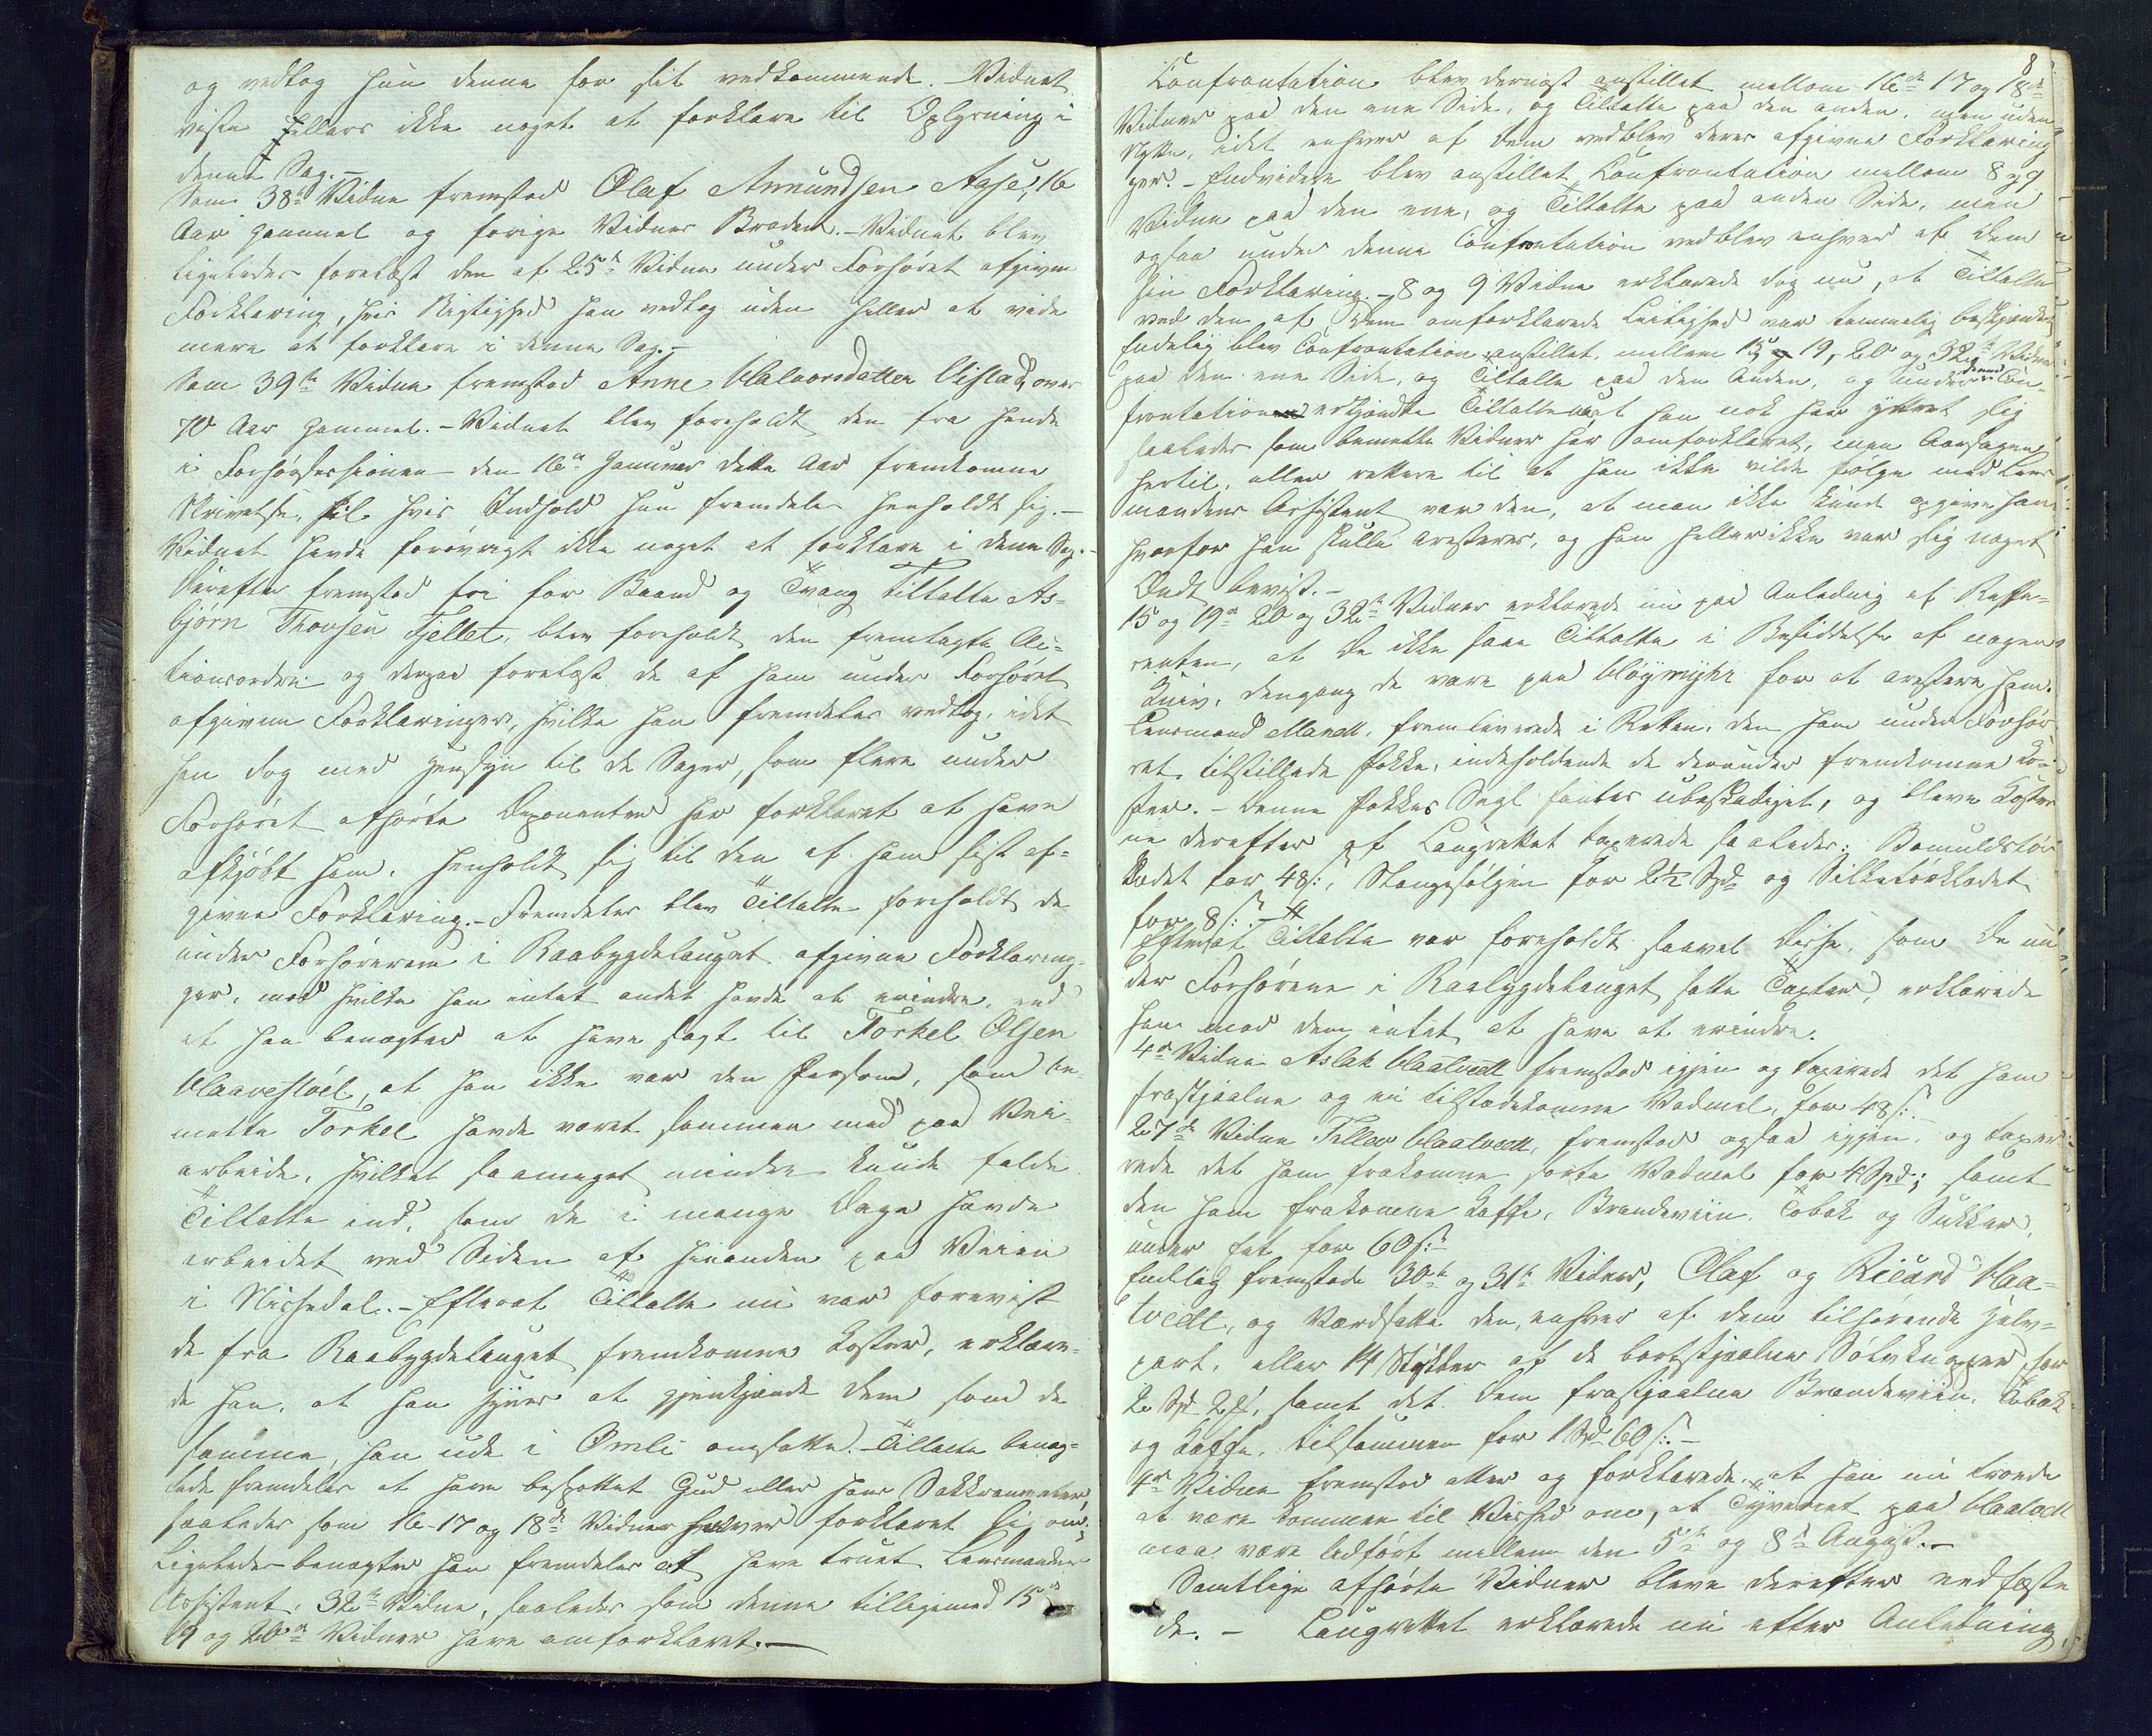 og vedtog hun denne for sit vedkommende. – Vidnet
viste hellers ikke noget at forklare til Oplysning i
denne Sag. –
Som 38te Vidne fremstod Olaf Amundsen Aase, 16
Aar gammel og forige Vidnes Broder. – Vidnet blev
ligeledes forelæst den af 25de Vidne under Forhøret afgivne
Forklaring, hvis Rigtighed han vedtog uden heller at vide
mere at forklare i denne Sag. –
Som 39te Vidne fremstod Anne Halvorsdatter, over
70 Aar gammel. – Vidnet blev foreholdt den fra hende
i Forhørssessionen den 16de Januar dette Aar fremkomne
Skrivelse, til hvis Indhold hun fremdeles henholdt sig. –
Vidnet havde forøvrigt ikke noget at forklare i denne Sag. –
Derefter fremstod fri for Baand og Tvang Tiltalte As-
bjørn Thorsen Fjellet, blev foreholdt den fremlagte Ac-
tionsordre og derpaa forelæst de af ham under Forhøret
afgivne Forklaringer, hvilke han fremdeles vedtog, idet
han dog med Hensyn til de Sager, som flere under
Forhøret afhørte Deponenter har forklaret at have
afkjøbt ham, henholdt sig til den af ham sist af-
givne Forklaring. – Fremdeles blev Tiltalte foreholdt de
under Forhørerne i Raabygdelauget afgivne Forklarin-
ger, mod hvilke han intet andet havde at erindre, end
at han benægter at have sagt til Torkel Olsen
Haavestøel, at han ikke var den Person, som be-
mette Torkel havde været sammen med paa Vei-
arbeide, hvilket saameget mindre kunde falde
Tiltalte ind, som de i mange Dage havde
arbeidet ved Siden af hinanden paa Veien
i Nissedal. – Efterat Tiltalte nu var forevist
de fra Raabygdelauget fremkomne Koster, erklære-
de han, at han synes at gjenkjende dem som de
samme, han ude i Omli omsatte. – Tiltalte benæg-
tede fremdeles at have bespottet Gud eller hans Sakkramenter,
saaledes som 16-17 og 18de Vidner har forklaret sig om;
Ligeledes benægter han fremdeles at have truet Lensmandens
Assistent, 32te Vidne, saaledes som denne tilligemed 15de
19 og 20de Vidner have omforklaret. –
8
Confrontation blev dernæst anstillet mellem 16de 17 og 18de
Vidner paa den ene Side, og Tiltalte paa den anden, men uden
Nytte, idet enhver af dem vedblev deres afgivne Forklarin-
ger. – Endvidere blev anstillet Confrontation mellem 8 og 9
Vidne paa den ene, og Tiltalte paa anden Side, men
ogsaa under denne Confrontation vedblev enhver af dem
sin Forklaring. – 8 og 9 Vidne erklærede dog nu, at Tiltalte
ved den af dem omforklarede Leilighed var temmelig beskjænket
Endelig blev Confrontation anstillet mellem 15, 19, 20 og 32te Vidne
paa den ene Side, og Tiltalte paa den Anden, og under denne Con-
frontation erkjendte Tiltalte at han nok har yttret sig
saaledes som bemelte Vidner har omforklaret, men Aarsagen
hertil, eller rettere til at han ikke vilde følge med Lens-
mandens Assistent var den, at man ikke kunde opgive ham
hvorfor han skulle aresteres, og han heller ikke var sig noget
Ondt bevist. –
15 og 19de 20 og 32te Vidner erklærede nu paa Anledning af Refe-
renten, at de ikke saae Tiltalte i Besiddelse af nogen
Kniv, dengang de vare paa Høymyhr for at arestere ham.
Lensmand Mandt, fremleverede i Retten, den ham under Forhø-
ret tilstillede Pakke, indeholdende de derunder fremkomne Ko-
ster. – Denne Pakkes Segl fantes ubeskadiget, og bleve Koster-
ne derefter af Laugrettet taxerede saaledes: Bomuldstør-
klædet for 48 s:, Stangsølgen for 2½ Spd og Silketørklædet
for 8 s: –
Efterat Tiltalte var foreholdt saavel disse, som de un-
der Forhørene i Raabygdelauget satte Taxter, erklærede
han mod dem intet at have at erindre.
4de Vidne Aslak Haatvedt fremstod igjen og taxerede det ham
frastjaalne og ei tilstedekomne Vadmel, for 48 s: –
27de Vidne Tellev Haatvedt, fremstod ogsaa igjen, og taxe-
rede det ham frakomne sorte Vadmel for 4 Spd:; samt
den ham frakomne Kaffe, Brændeviin, Tobak og Sukker,
under eet for 60 s: –
Endelig fremstode 30te og 31te Vidner, Olaf og Ricard Haa-
tvedt, og Værdsatte den, enhver af dem tilhørende Halv-
part, eller 14 Stykker af de bortstjaalne Sølvknapper for
2 Spd 2 , samt det dem frastjaalne Brændeviin, Tobak
og Kaffe, tilsammen for 1 Spd 60 s: –
4de Vidne fremstod atter og forklarede, at han nu troede
at være kommen til Vished om, at Tyveriet paa Haatvedt
maa være udført mellem den 5te og 8de August. –
Samtlige afhørte Vidner bleve derefter edfæste-
de. – Laugrettet erklærede nu efter Anledning